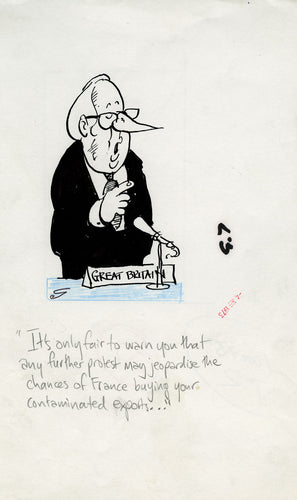 GREAT BRITAIN
G.7
"It's only fair to warn you that
any further protest may jeopardise the
chances of France buying your
contaminated exports..."